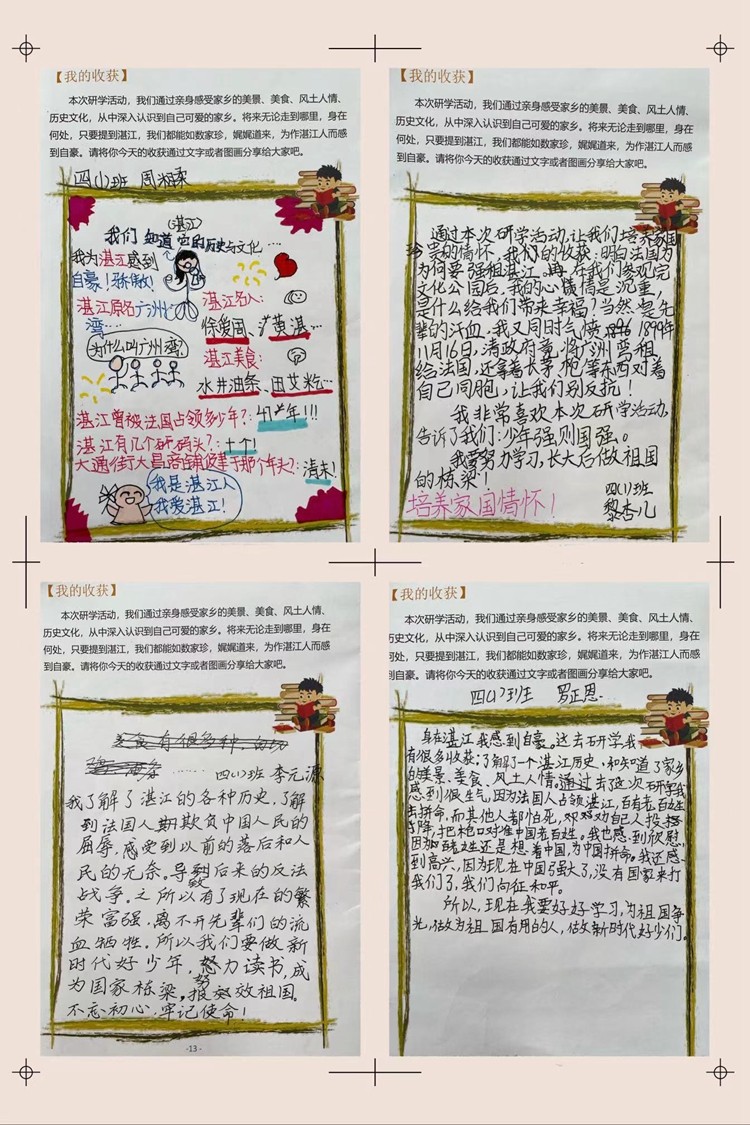 【我的收获】
本次研学活动，我们通过亲身感受家乡的美景、美食、风土人情、
历史文化，从中深入认识到自己可爱的家乡。将来无论走到哪里，身在
何处，只要提到湛江，我们都能如数家珍，娓娓道来，为作湛江人而感
到自豪。请将你今天的收获通过文字或者图画分享给大家吧。
四(1)班 周湘
(湛江)
我们 知道它的历史与文化…
我为湛江感到
自豪！骄傲！
湛江原名广州
湾……
为什么叫广州湾?
湛江名人：
徐爱周、黄湛…
湛江美食：
水井油条、田艾籺…
湛江曾被法国占领多少年？：47年！！！
湛江有几个码头？：十个！
大通街大昌商铺修建于那个年头？：清末！
我是湛江人
我爱湛江！
【我的收获】
本次研学活动，我们通过亲身感受家乡的美景、美食、风土人情、
历史文化，从中深入认识到自己可爱的家乡。将来无论走到哪里，身在
何处，只要提到湛江，我们都能如数家珍，娓娓道来，为作湛江人而感
到自豪。请将你今天的收获通过文字或者图画分享给大家吧。
通过本次研学活动，让我们培养家国
珍贵的情怀，我们的收获：明白法国为
为何要强租湛江。再在我们参观完
文化公园后，我的心情是沉重，
是什么给我们带来幸福？当然是先
辈的汗血，我又同时气愤，1899年
11月16日，清政府竟将广州湾租
给法国，还拿着长矛、枪等东西对着
自己同胞，让我们别反抗！
我非常喜欢本次研学活动，
告诉了我们：少年强则国强。
我要努力学习，长大后做祖国
的栋梁！
四(1)班
培养家国情怀！
黎杏儿
【我的收获】
本次研学活动，我们通过亲身感受家乡的美景、美食、风土人情、
历史文化，从中深入认识到自己可爱的家乡。将来无论走到哪里，身在
何处，只要提到湛江，我们都能如数家珍，娓娓道来，为作湛江人而感
到自豪。请将你今天的收获通过文字或者图画分享给大家吧。
美食有很多种，
…… 四(1)班 李元源
我了解了湛江的各种历史，了解
到法国人欺负中国人民的
屈辱，感受到以前的落后和人
民的无奈。导致后来的反法
战争。之所以有了现在的繁
荣富强，离不开先辈们的流
血牺牲。所以我们要做新
时代好少年，努力读书，成
为国家栋梁，报效祖国。
不忘初心，牢记使命！
·13·
【我的收获】
本次研学活动，我们通过亲身感受家乡的美景、美食、风土人情、
历史文化，从中深入认识到自己可爱的家乡。将来无论走到哪里，身在
何处，只要提到湛江，我们都能如数家珍，娓娓道来，为作湛江人而感
到自豪。请将你今天的收获通过文字或者图画分享给大家吧。
四(1)班 罗正恩
身在湛江我感到自豪。这去研学我
有很多收获：了解了一个湛江历史、和知道了家乡
的美景、美食、风土人情。通过去了这次研学我
感到很生气，因为法国人占领湛江，百有老百姓
去拼命，而其他人都怕死，对自己人投
降，把枪口对准中国老百姓。我也感到欣慰，
因为百姓还是想着中国，为中国拼命。我还感
到高兴，因为现在中国强大了，没有国家来打
我们了，我们向征和平。
所以，现在我要好好学习，为祖国争
光，做为祖国有用的人，做新时代好少们。